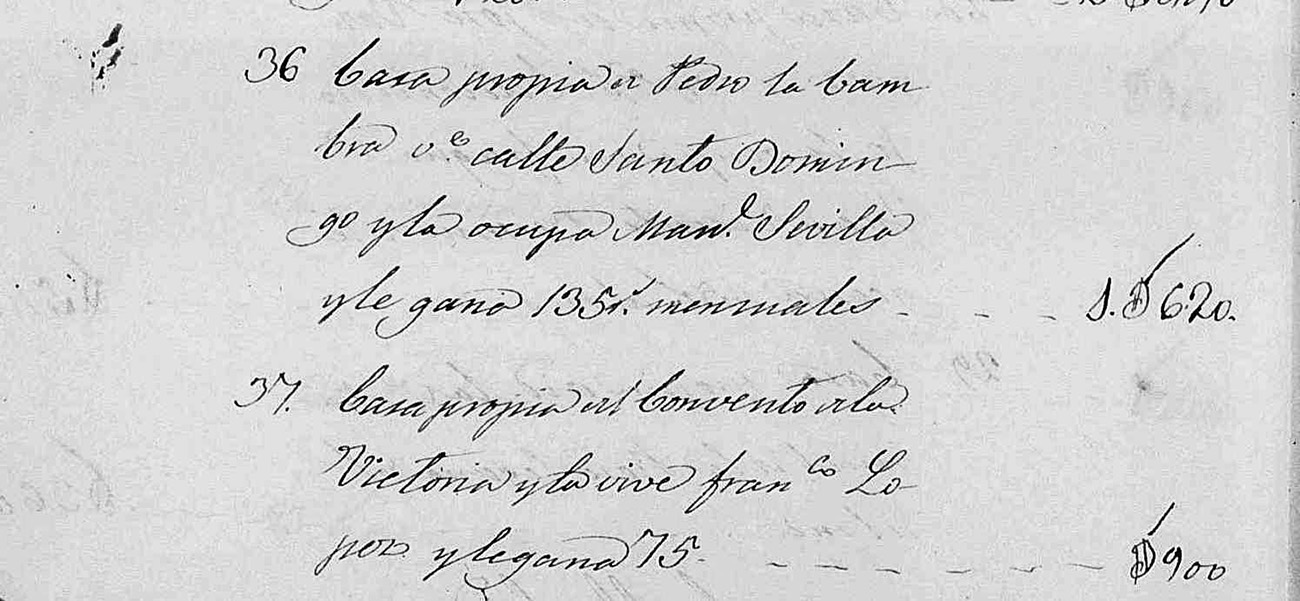 36 Casa propia de Pedro la Cam
bra vº calle Santo Domin
go y la ocupa Man.l Sevilla
y le gana 135 r.s mensuales - - - 1.U 620.
37. Casa propia del Convento de la
Victoria y la vive Fran.co Lo
pez y le gana 75 - - - - - - - U 900